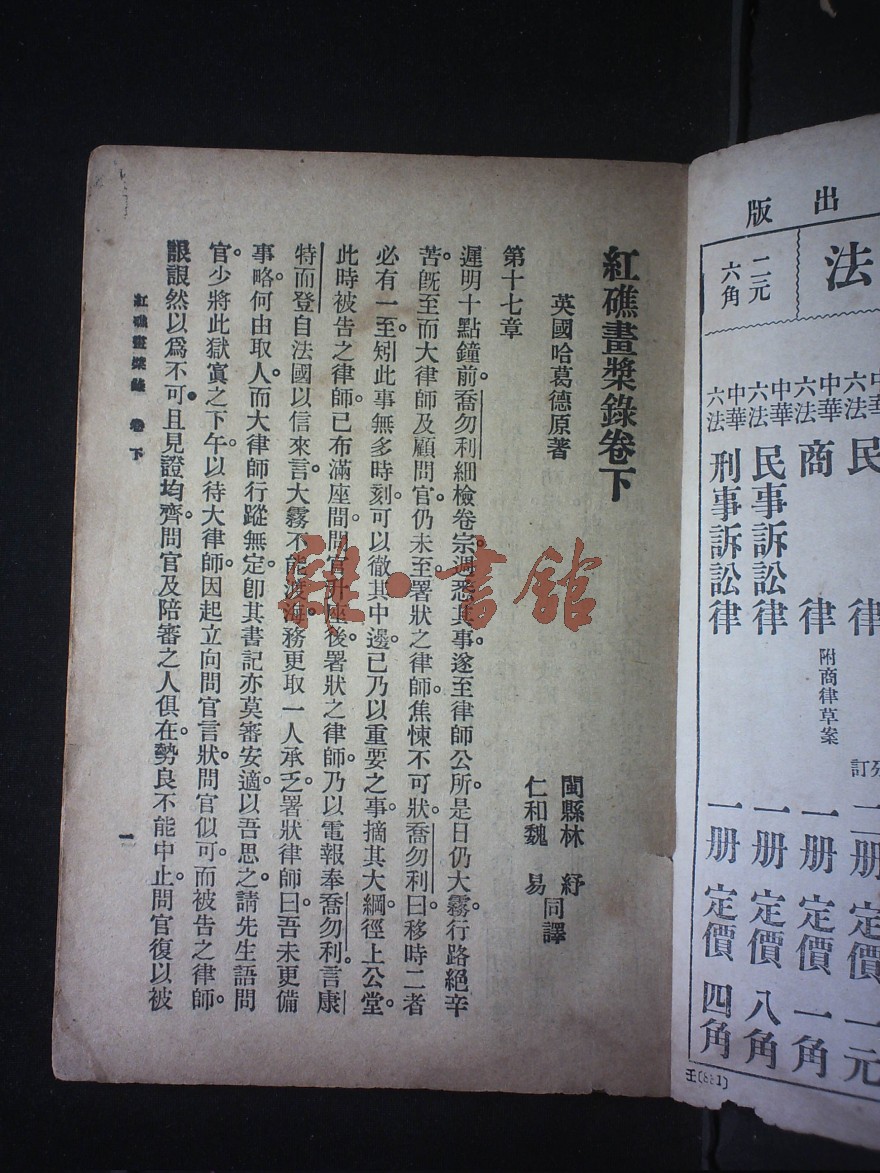 出版
法
二元六角
中華六法 民律 二册 定價 一元
中華六法 商律 附商律草案 一册 定價 一角
中華六法 民事訴訟律 一册 定價 八角
中華六法 刑事訴訟律 一册 定價 四角
紅礁畫槳錄卷下
英國哈葛德原著
閩縣林紓
仁和魏易
同譯
第十七章
遲明十點鐘前。喬勿利細檢卷宗。洞悉其事。遂至律師公所。是日仍大霧。行路絕辛
苦。旣至而大律師及顧問官仍未至。署狀之律師。焦悚不可狀。喬勿利曰。移時二者
必有一至。矧此事無多時刻。可以徹其中邊。已乃以重要之事。摘其大綱。徑上公堂。
此時被告之律師。已布滿座間。問官升座後。署狀之律師。乃以電報奉喬勿利。言康
特而登自法國以信來。言大霧不能渡海。務更取一人承乏。署狀律師曰。吾未更備
事略。何由取人。而大律師行蹤無定。卽其書記亦莫審安適。以吾思之。請先生語問
官。少將此獄寘之下午。以待大律師。因起立向問官言狀。問官似可。而被告之律師。
誾誾然以爲不可。且見證均齊。問官及陪審之人俱在。勢良不能中止。問官復以被
紅礁畫槳錄 卷下
一
雜·書館